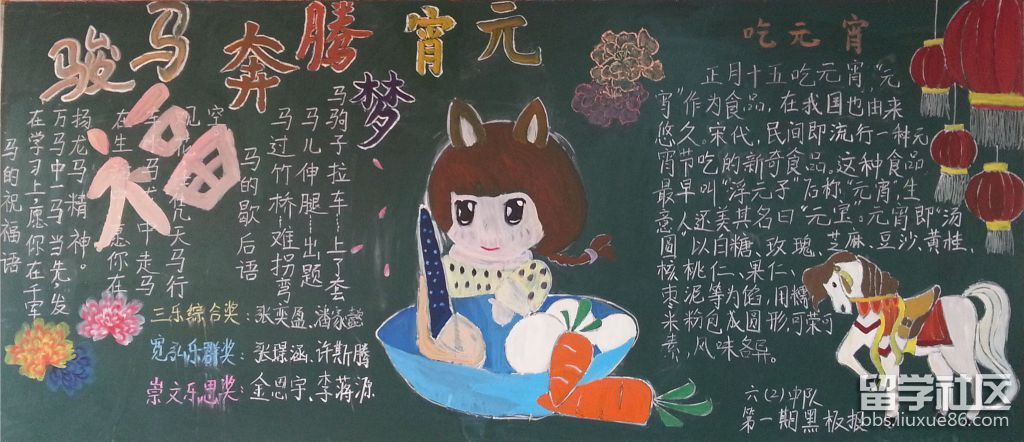 骏马奔腾
宵元
梦
福
马的祝福语
在学习上,愿你在千军
万马中一马当先,发
扬龙马精神。
在生 愿你在
中走马
天马行
空
马的歇后语
马过竹桥难拐弯
马儿伸腿—出题
马驹子拉车—上了套
三乐综合奖:张奕盈、潘家懿
宽泓乐群奖:张璟涵、许斯腾
崇文乐思奖:金思宇、李蒋源
吃元宵
正月十五吃元宵,"元
宵"作为食品,在我国也由来
悠久。宋代,民间即流行一种元
宵节吃的新奇食品。这种食品
最早叫"浮元子"后称"元宵,生
意人还美其名曰"元宝。元宵即"汤
圆"以白糖、玫瑰、芝麻、豆沙、黄桂、
核桃仁、果仁、
枣泥等为馅,用糯
米粉包成圆形,可荤可
素,风味各异。
六(2)中队
第一期黑板报
留学社区
bbs.liuxue86.com